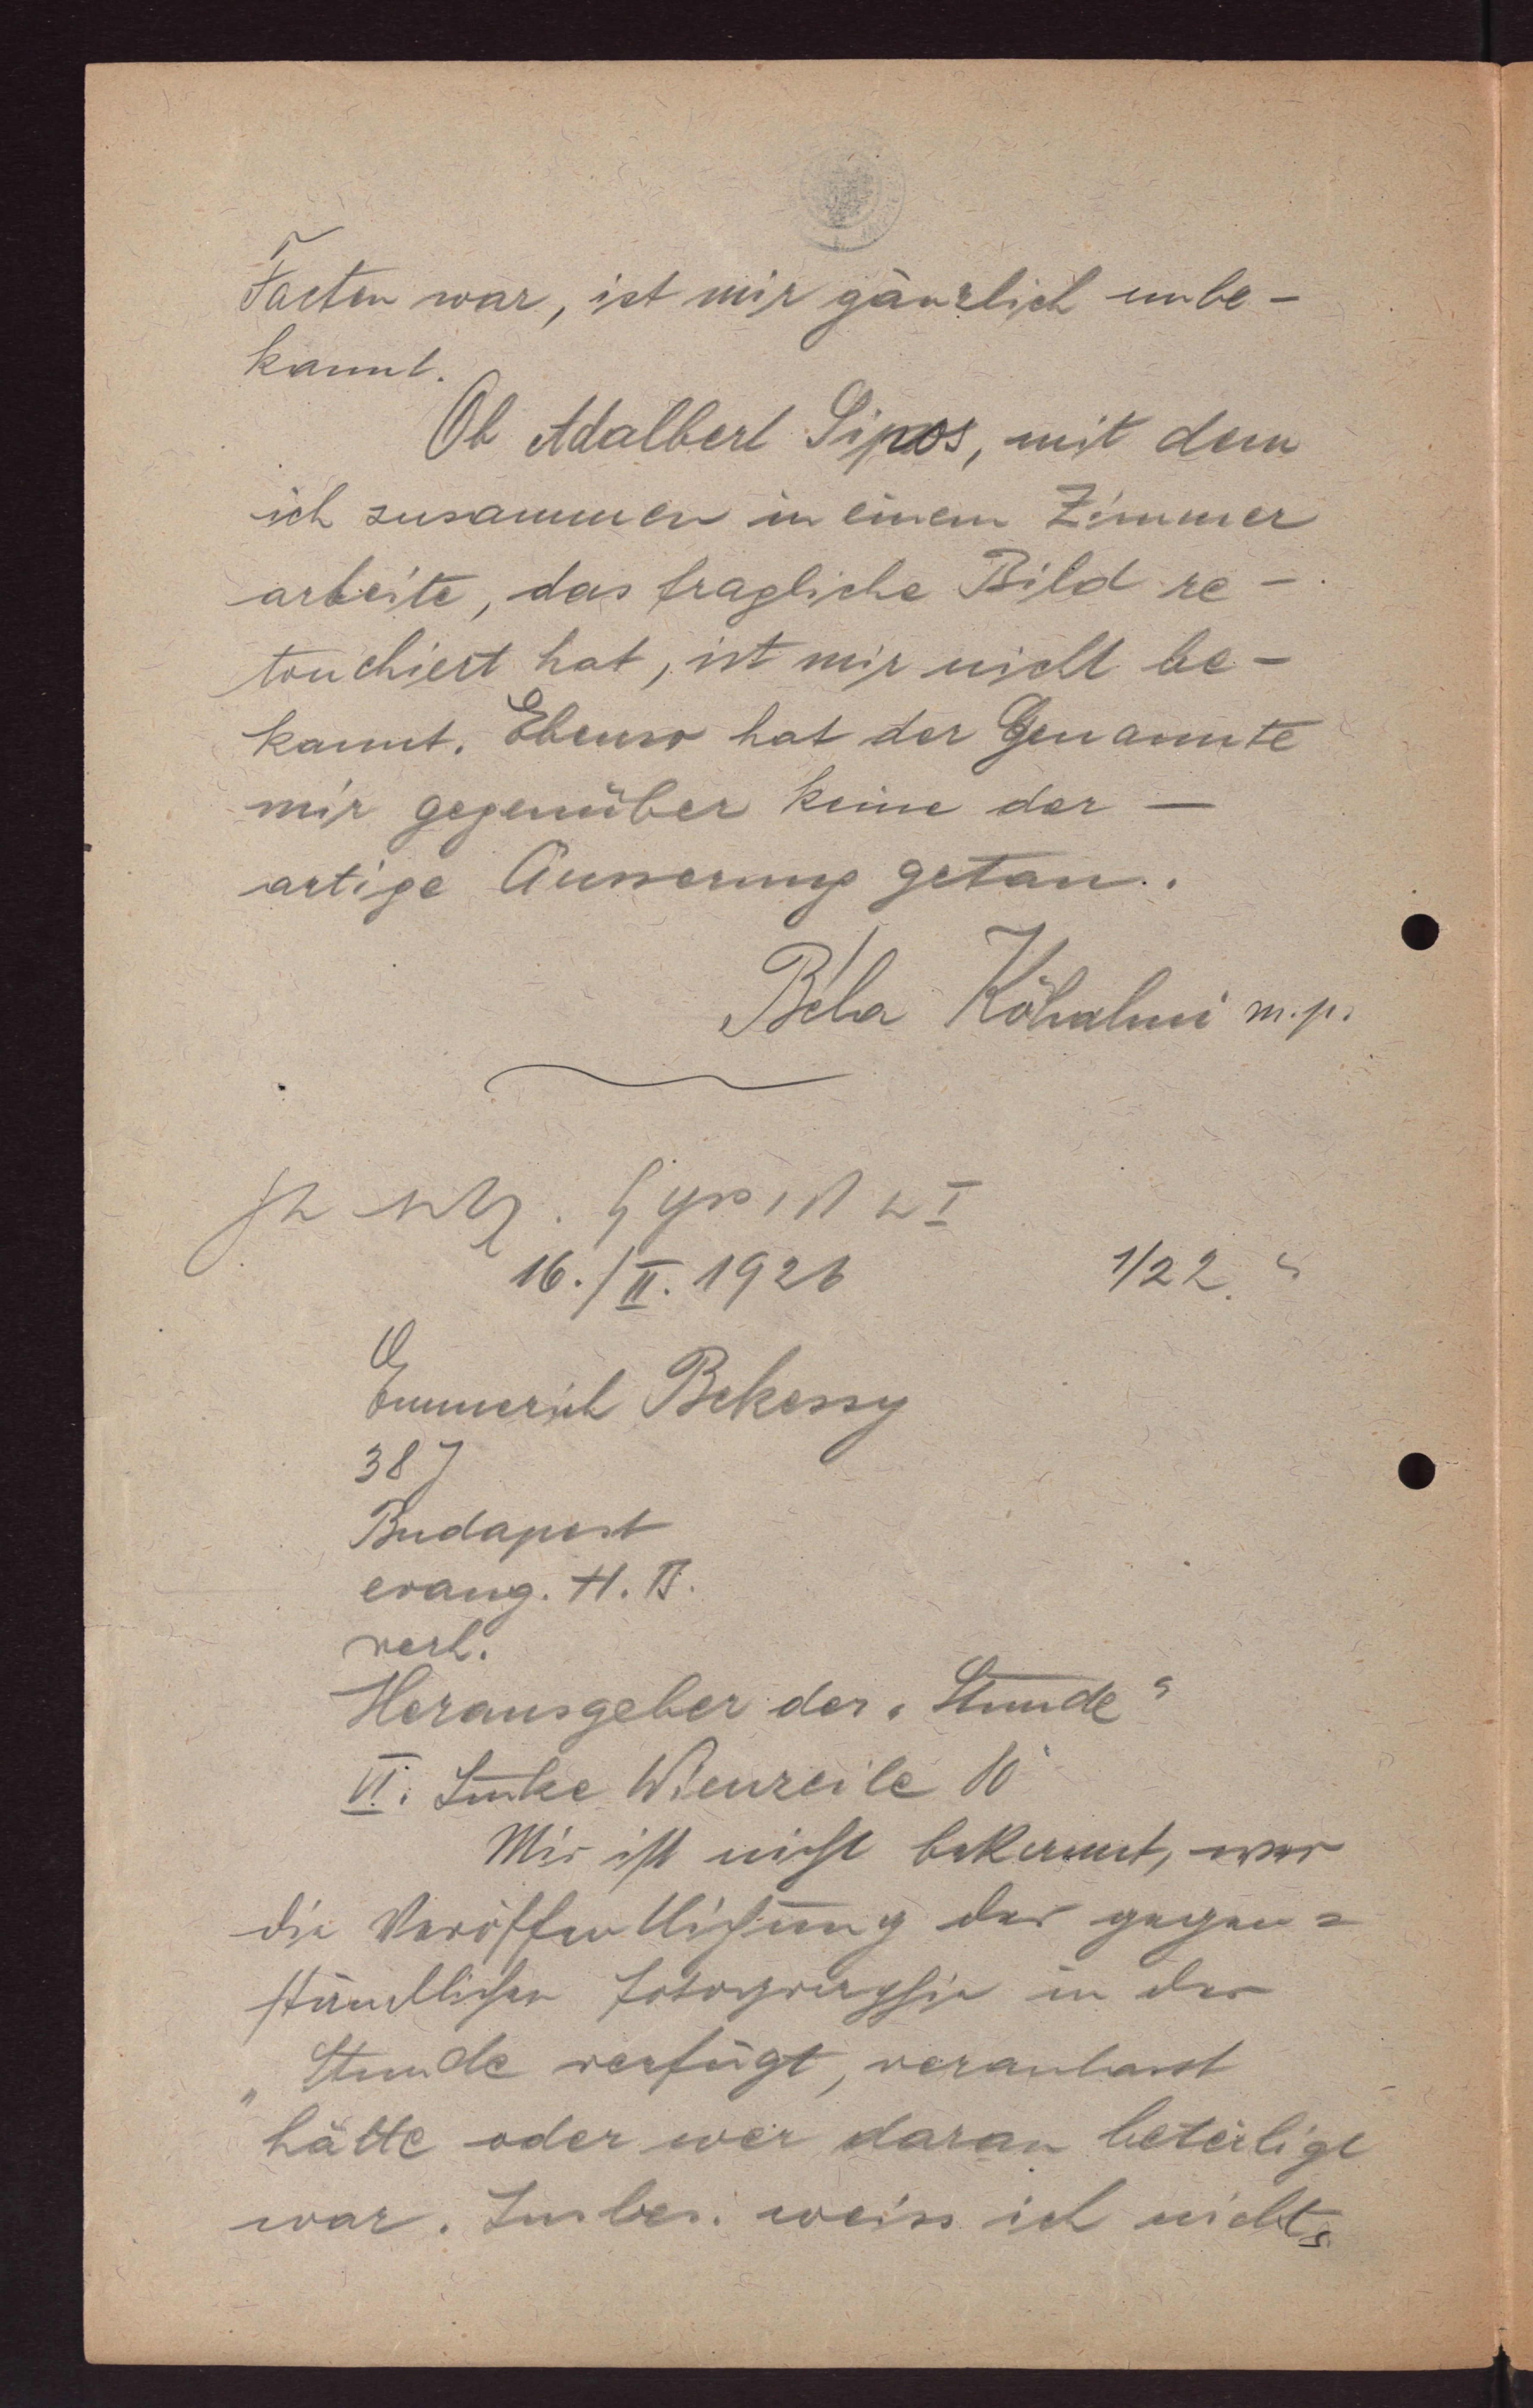 Facten war, ist mir gänzlich unbe-
kannt.
Ob Adalbert Sipos, mit dem
ich zusammen in einem Zimmer
arbeite, das fragliche Bild re-
touchiert hat, ist mir nicht be-
kannt. Ebenso hat der Genannte
mir gegenüber keine der-
artige Äusserung getan.
Béla Köhalmi m.p.
16./II. 1926
1/22
Emmerich Bekessy
38 J
Budapest
evang. H. B.
verh.
Herausgeber der „Stunde“
VI. Linke Wienzeile 10
Mir ist nicht bekannt, wer
die Veröffentlichung der gegen=
ständlichen Fotographie in der
„Stunde verfügt, veranlasst
hätte oder wer daran beteiligt
war. Insbes. weiss ich nichts